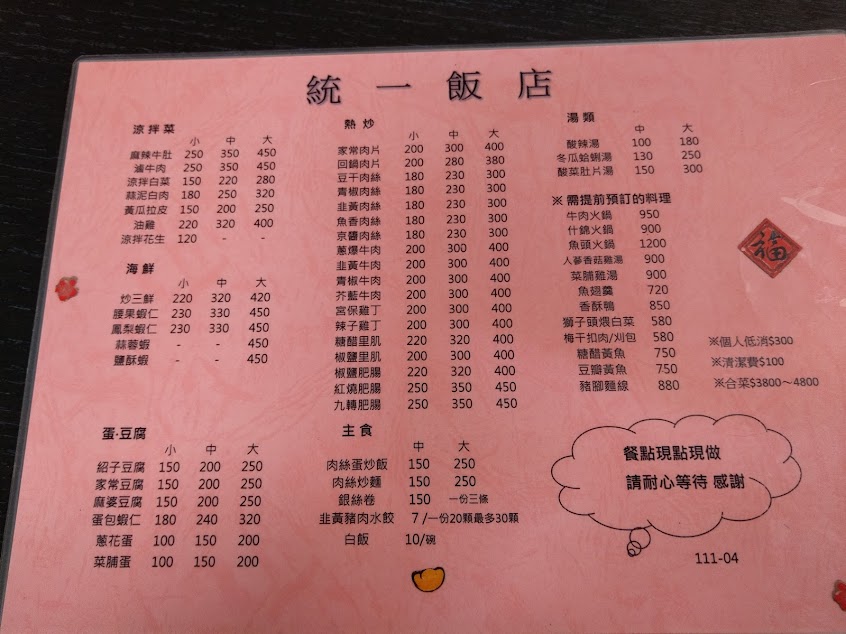 統一飯店
涼拌菜
小 中 大
麻辣牛肚 250 350 450
滷牛肉 250 350 450
涼拌白菜 150 220 280
蒜泥白肉 180 250 320
黃瓜拉皮 150 200 250
油雞 220 320 400
涼拌花生 120 - -
海鮮
小 中 大
炒三鮮 220 320 420
腰果蝦仁 230 330 450
鳳梨蝦仁 230 330 450
蒜蓉蝦 - - 450
鹽酥蝦 - - 450
蛋‧豆腐
小 中 大
紹子豆腐 150 200 250
家常豆腐 150 200 250
麻婆豆腐 150 200 250
蛋包蝦仁 180 240 320
蔥花蛋 100 150 200
菜脯蛋 100 150 200
熱炒
小 中 大
家常肉片 200 300 400
回鍋肉片 200 280 380
豆干肉絲 180 230 300
青椒肉絲 180 230 300
韭黃肉絲 180 230 300
魚香肉絲 180 230 300
京醬肉絲 180 230 300
蔥爆牛肉 200 300 400
韭黃牛肉 200 300 400
青椒牛肉 200 300 400
芥藍牛肉 200 300 400
宮保雞丁 200 300 400
辣子雞丁 200 300 400
糖醋里肌 220 320 400
椒鹽里肌 200 300 400
椒鹽肥腸 220 320 400
紅燒肥腸 250 350 450
九轉肥腸 250 350 450
主食
中 大
肉絲蛋炒飯 150 250
肉絲炒麵 150 250
銀絲卷 150 一份三條
韭黃豬肉水餃 7/一份20顆最多30顆
白飯 10/碗
湯類
中 大
酸辣湯 100 180
冬瓜蛤蜊湯 130 250
酸菜肚片湯 150 300
※需提前預訂的料理
牛肉火鍋 950
什錦火鍋 900
魚頭火鍋 1200
人蔘香菇雞湯 900
菜脯雞湯 900
魚翅羹 720
香酥鴨 850
獅子頭煨白菜 580
梅干扣肉/刈包 580
糖醋黃魚 750
豆瓣黃魚 750
豬腳麵線 880
福
※個人低消$300
※清潔費$100
※合菜$3800～4800
餐點現點現做
請耐心等待 感謝
111-04